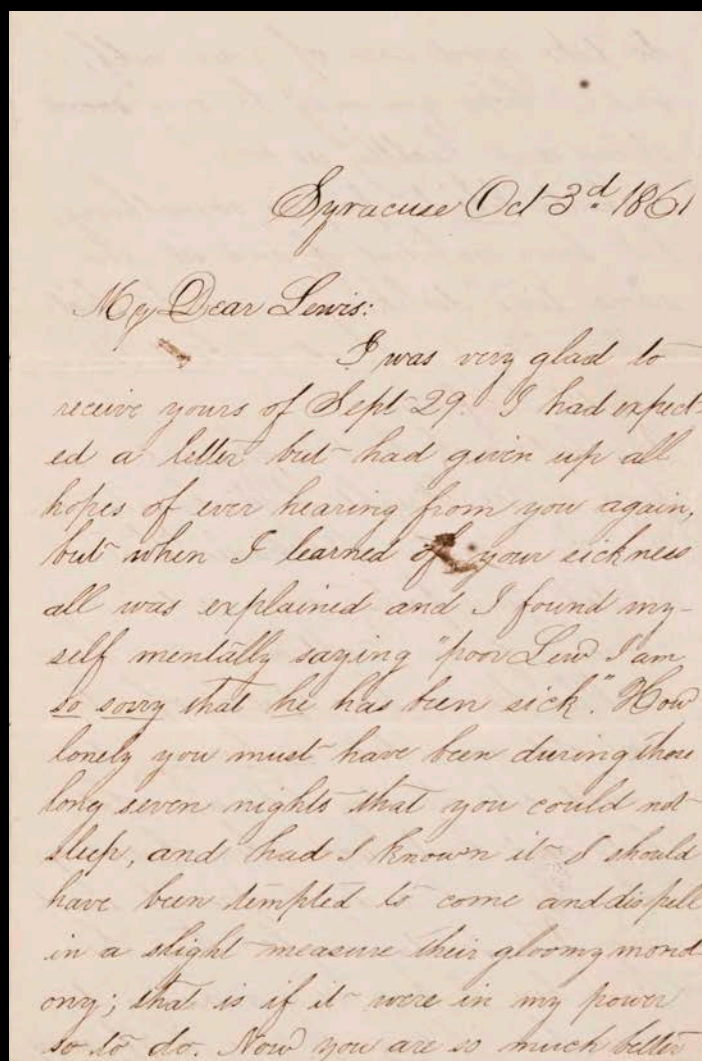 Syracuse Oct 3d. 1861
My Dear Lewis:
I was very glad to
receive yours of Sept 29. I had expect-
ed a letter but had given up all
hopes of ever hearing from you again,
but when I learned of your sickness
all was explained and I found my-
self mentally saying "poor Lew I am
so sorry that he has been sick". How
lonely you must have been during those
long seven nights that you could not
sleep, and had I known it I should
have been tempted to come and dispell
in a slight measure their gloomy monot
ony; that is if it were in my power
so to do. Now you are so much better